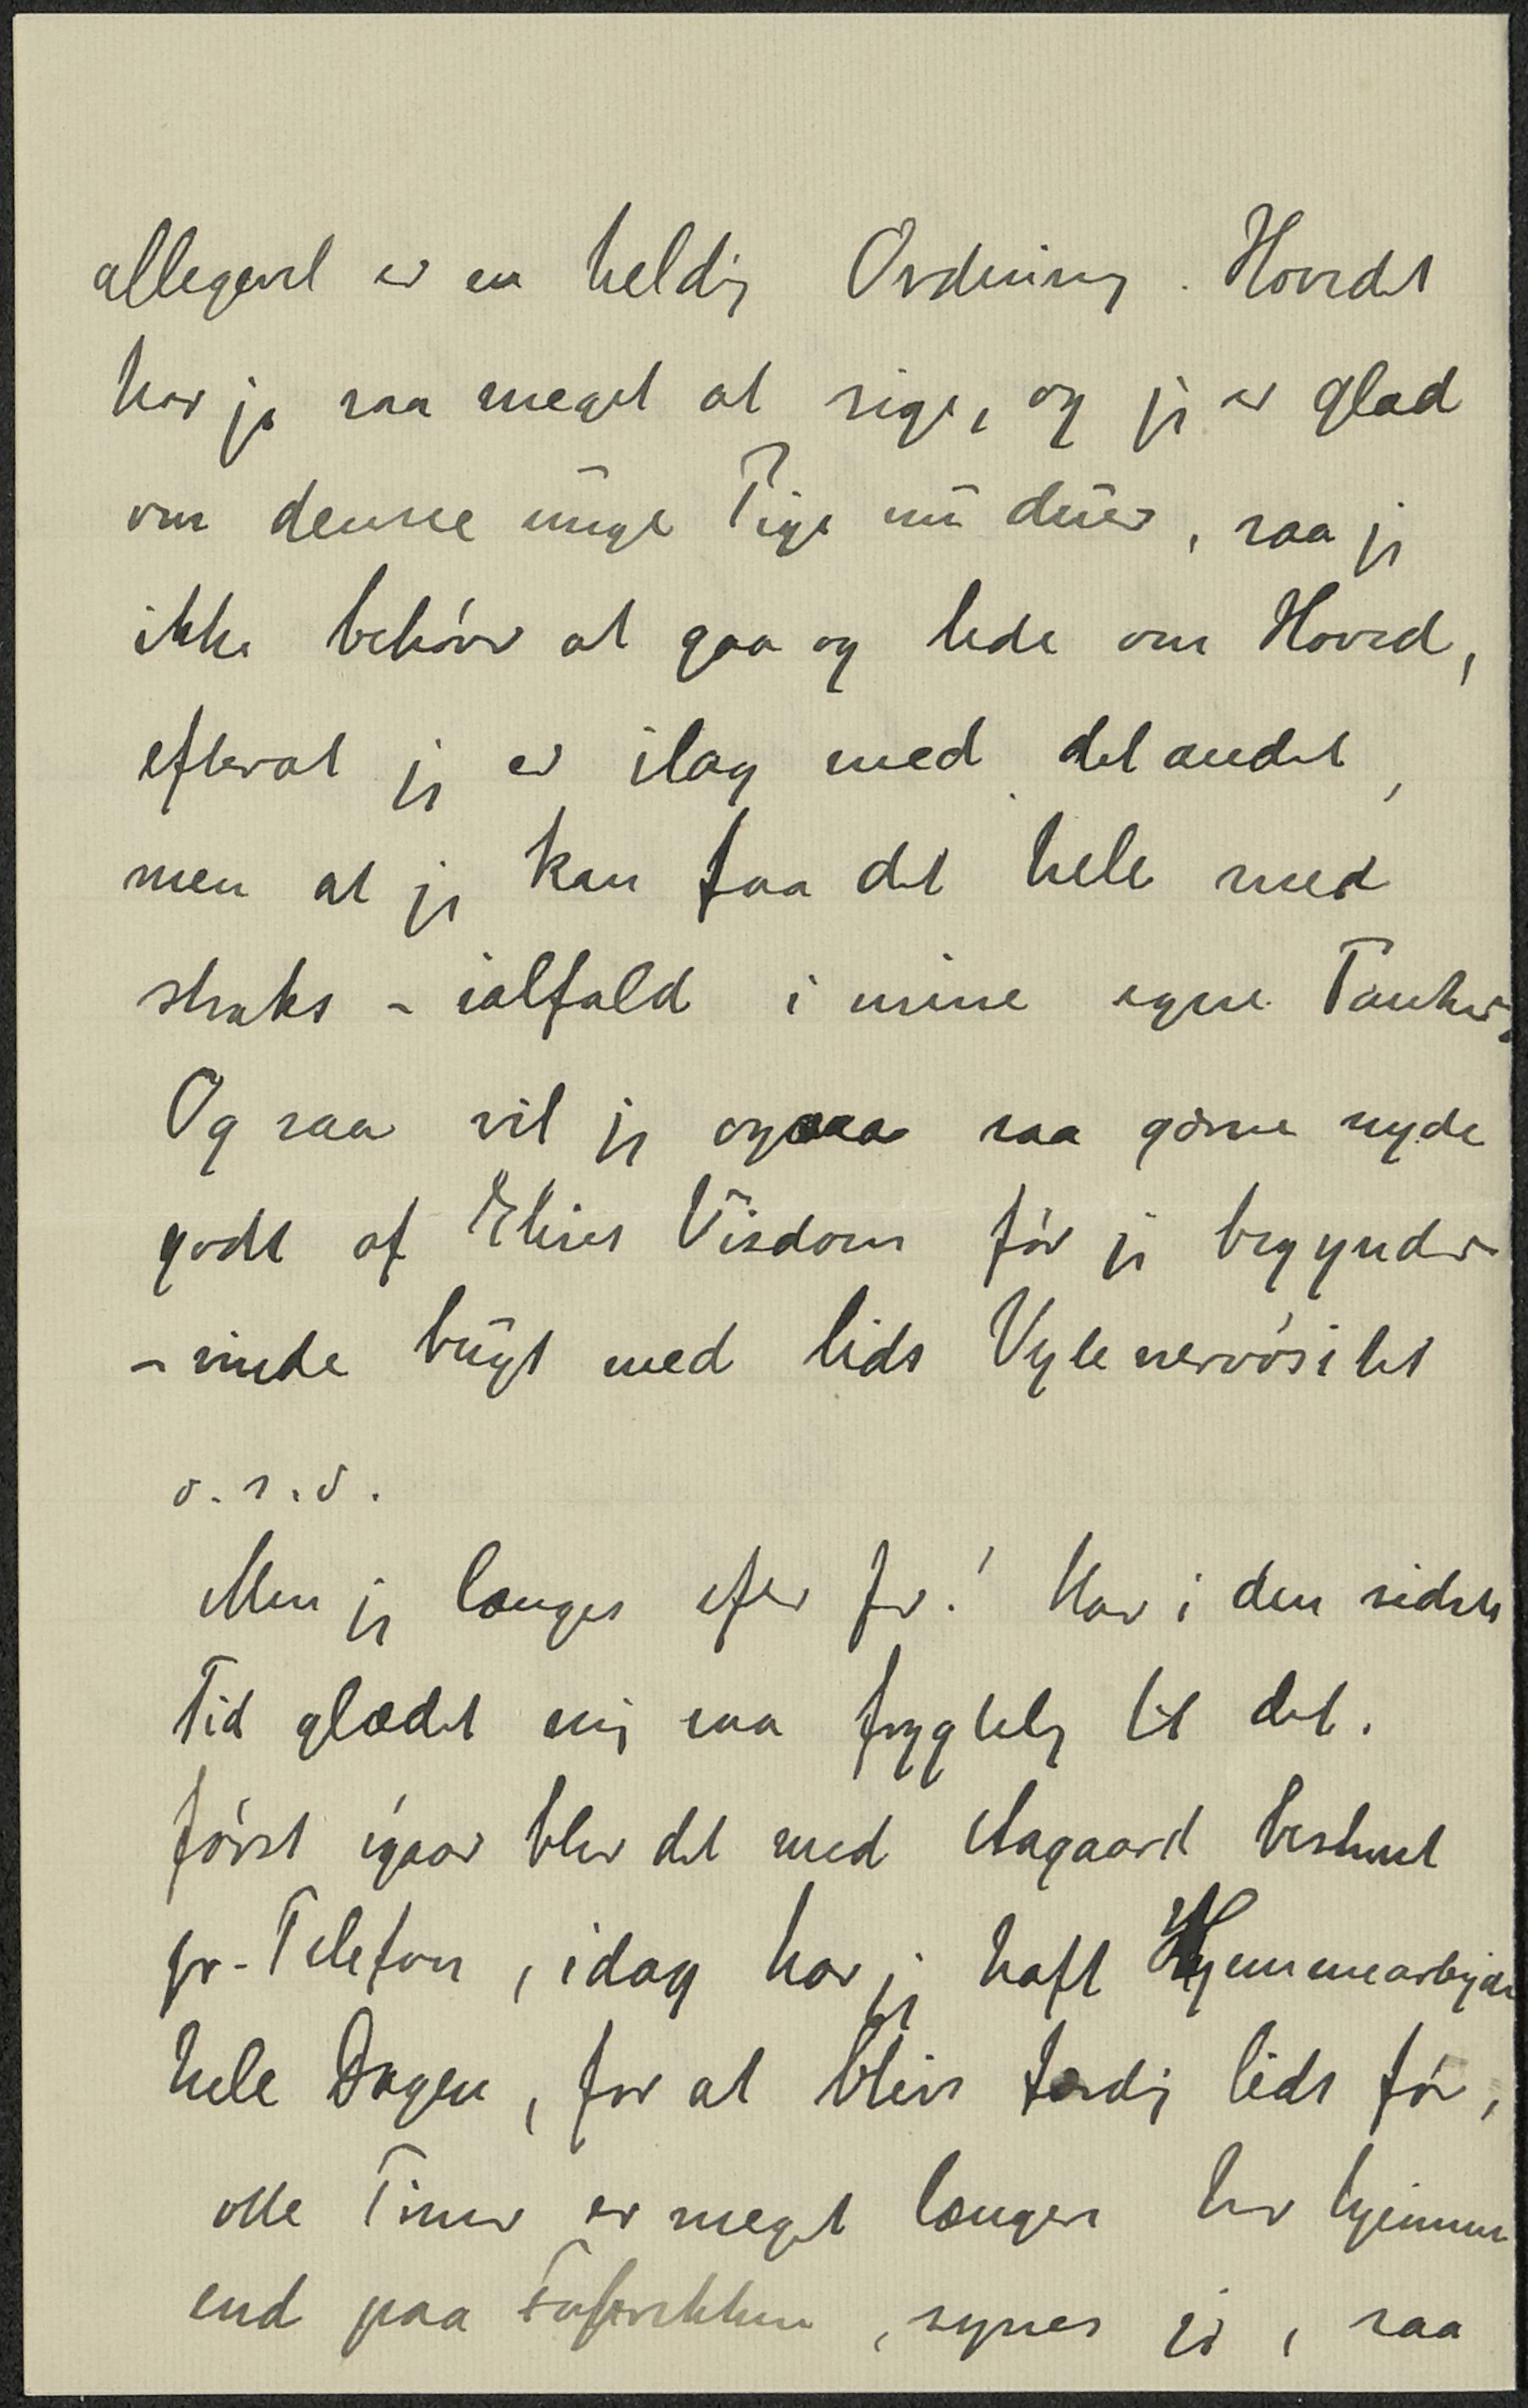 allegevel er en heldig Ordning. Hovedet
har jo saa meget at sige, og jeg er glad
om denne unge Pige nu duer, saa jeg
ikke behøver at gaa og lede om Hoved,
efterat jeg er ilag med det andet,
men at jeg kan faa det hele med
straks - ialfald i mine egne Tanker.
Og saa vil jeg ogsaa saa gerne nyde
godt af Elises Visdom før jeg begynder
- vinde bugt med lids Vyle nervøsitet
o.s.v.
Men jeg længes efter fr.! Har i den sidste
Tid glædet mig saa frygtelig til det.
først igaar blev det med Aagaard bestemt
pr. Telefon, idag har jeg haft Hjemmearbejde
hele Dagen, for at blive færdig lidt før,
otte Timer er meget længere her hjemme
end paa Fabrikken, synes jeg, saa